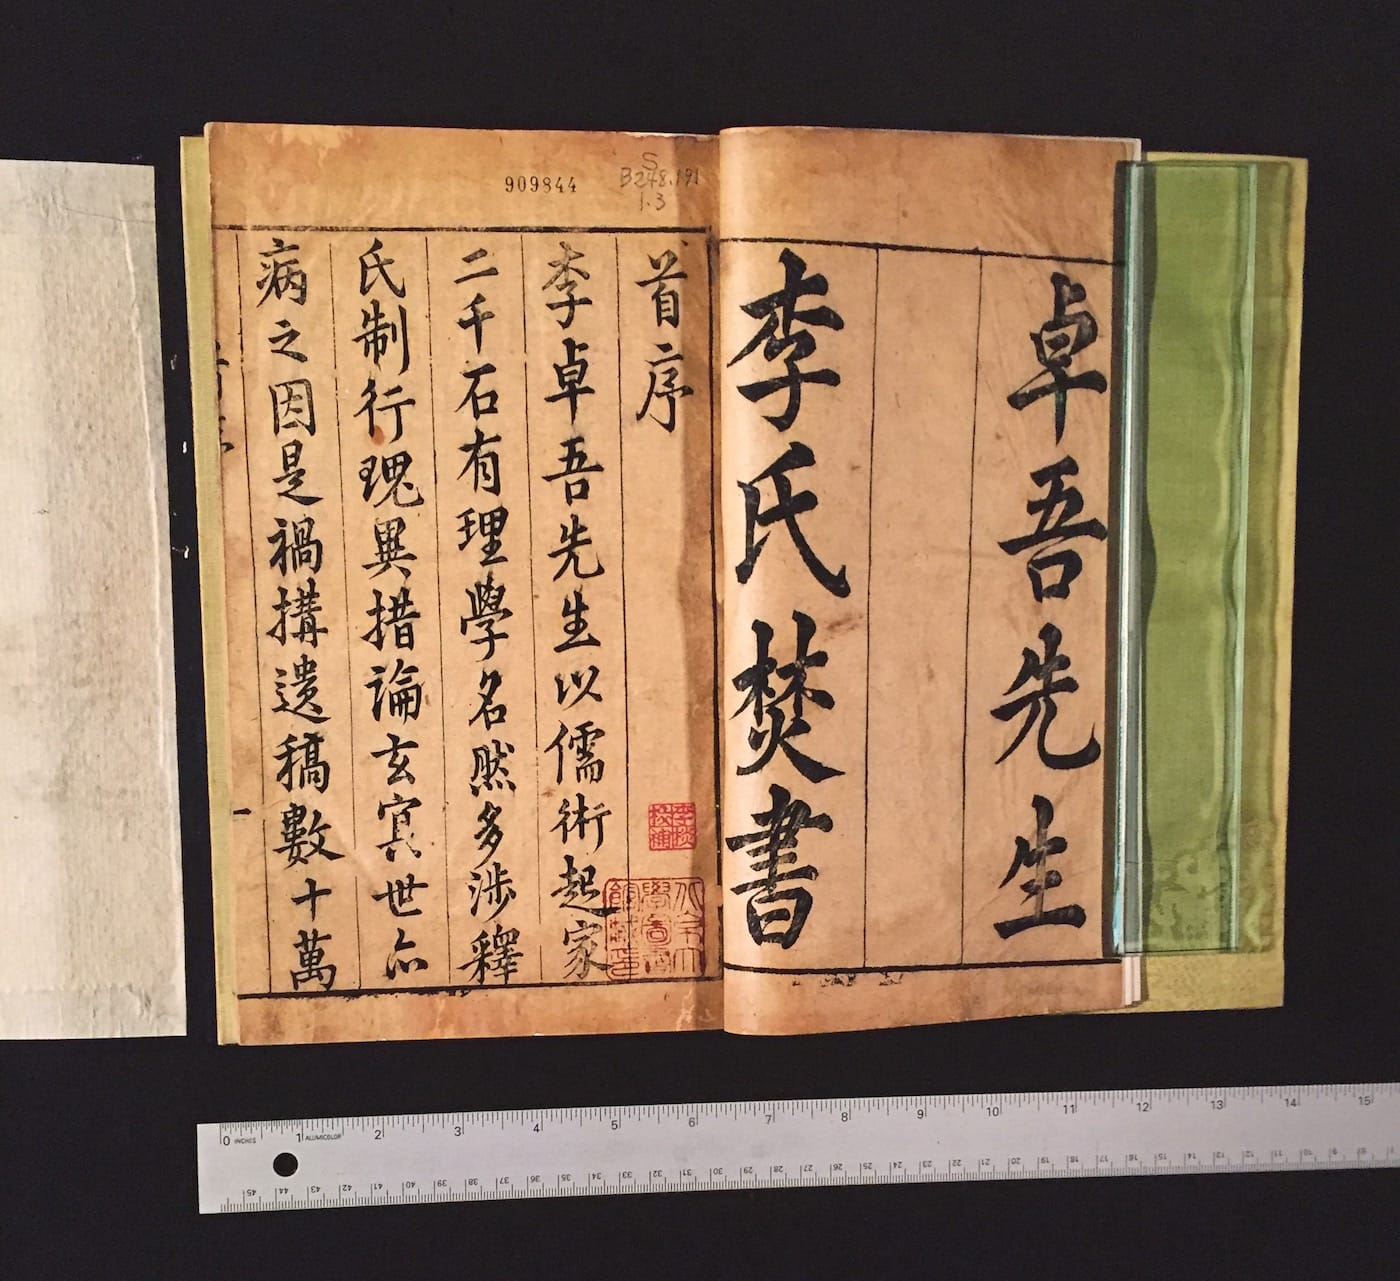 卓吾先生
李氏焚書
909844
S
B248.191
1.3
首序
李卓吾先生以儒術起家
二千石有理學名然多涉釋
氏制行瑰異措論玄冥世亦
病之因是禍搆遺稿數十萬
一
0 INCHES 1 ALUMICOLOR 2 3 4 5 6 7 8 9 10 11 12 13 14 15
45 44 43 42 41 40 39 38 37 36 35 34 33 32 31 30 29 28 27 26 25 24 23 22 21 20 19 18 17 16 15 14 13 12 11 10 9 8